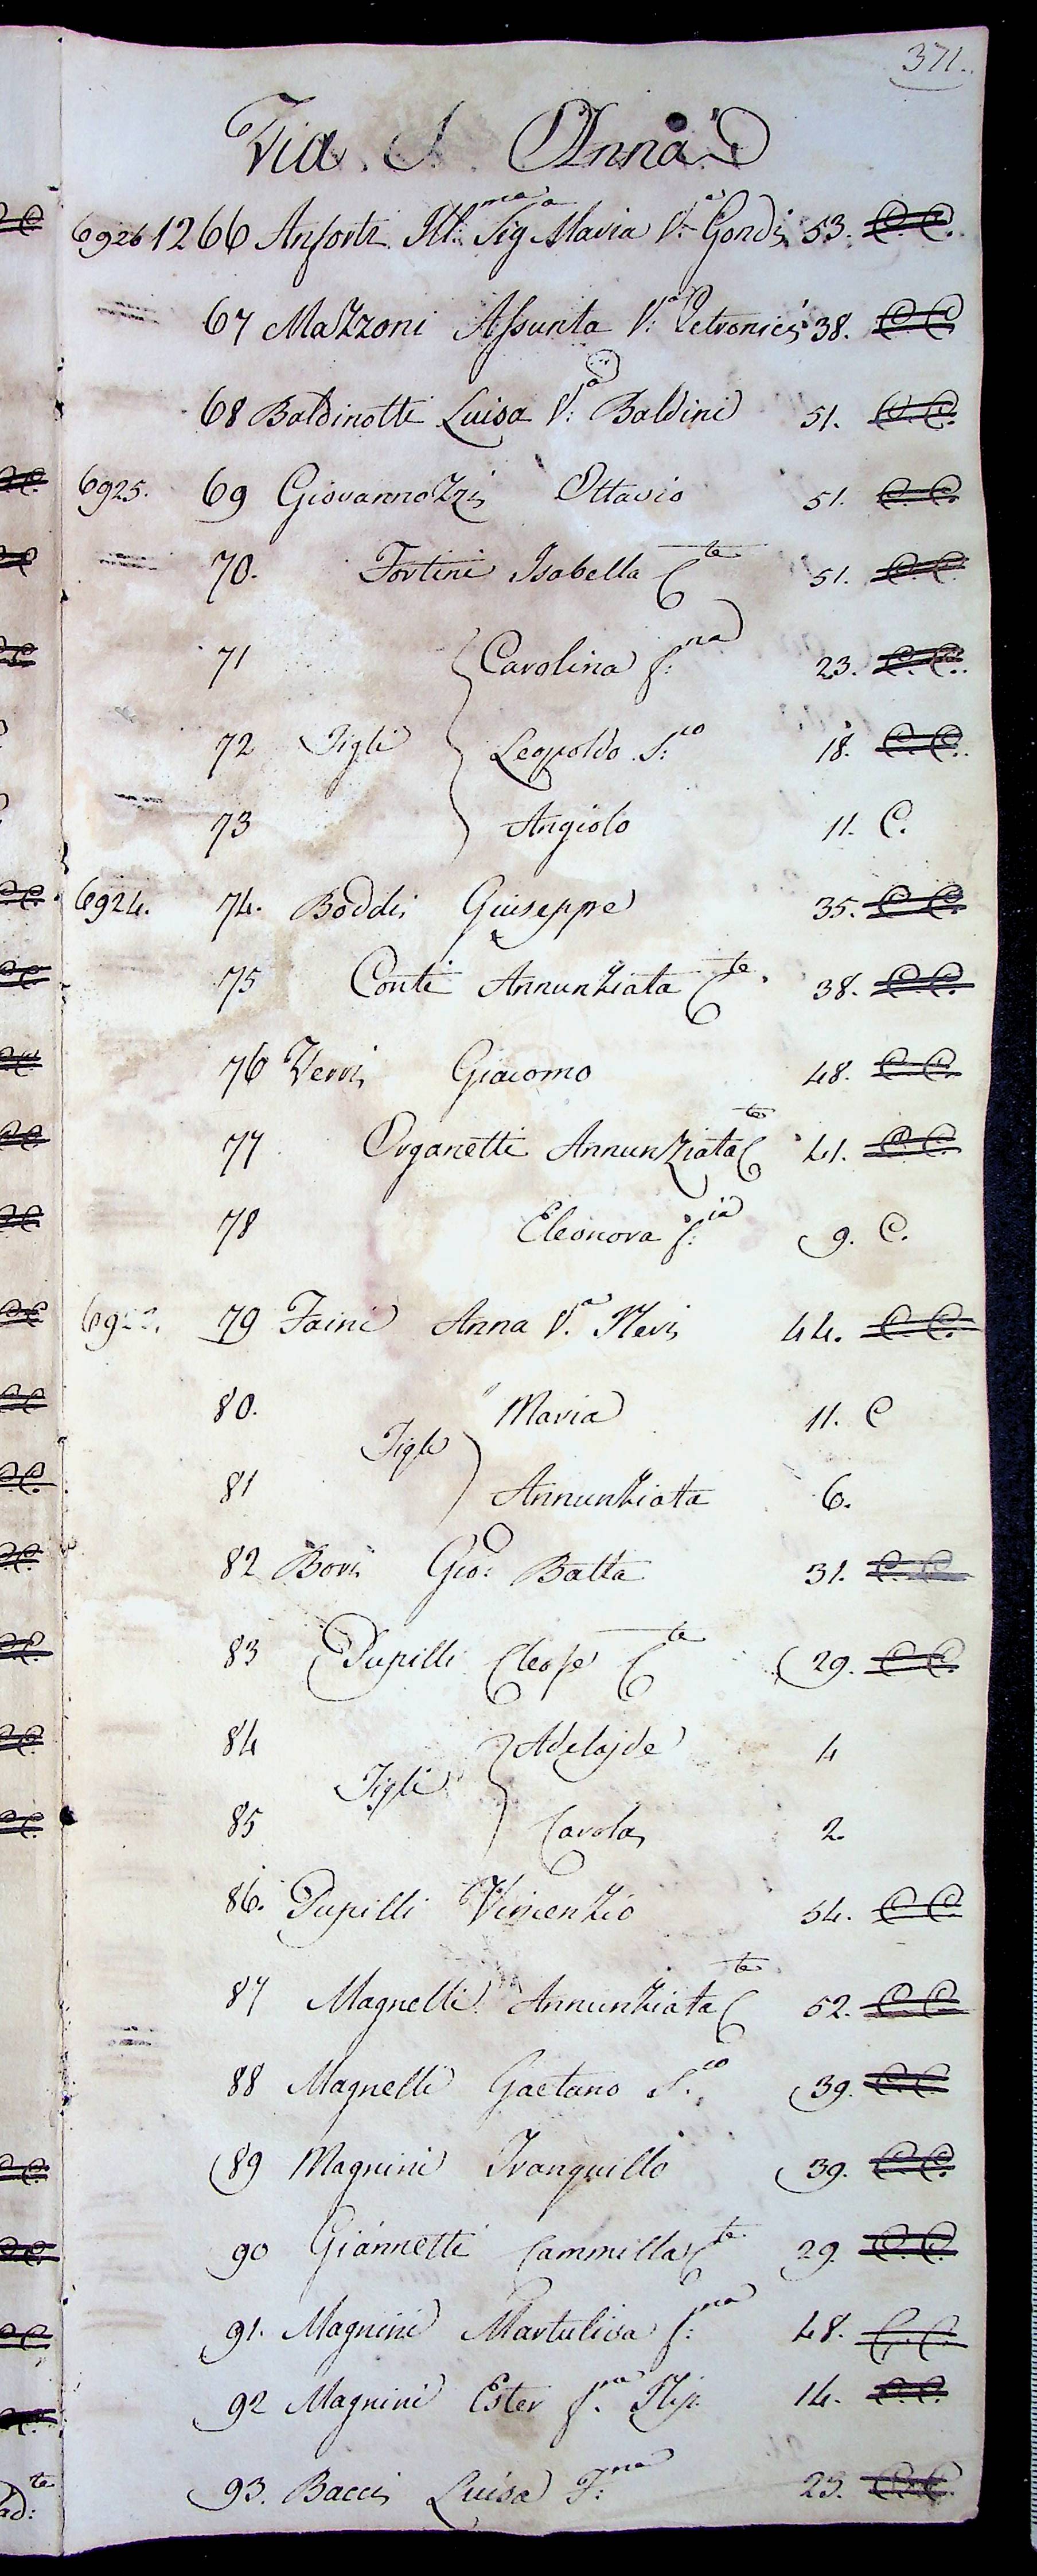 371.
Via S. Anna
6926 1266 Anforti Ill:ma Sig.a Maria V.a Gondi 53. C. C.
67 Mazzoni Assunta V:a Petronici 38. C C
68 Baldinotti Luisa V:a Baldini 51. C. C.
6925. 69 Giovannozzi Ottavio 51. C. C.
70. Fortini Isabella C.te 51. C. C.
71 Carolina f:na 23. C. C.
72 Figli Leopoldo S:co 18. C. C.
73 Angiolo 11. C.
6924. 74. Boddi Giuseppe 35. C C.
75 Conti Annunziata C.te 38. C. C.
76 Verri Giacomo 48. C C.
77 Organetti Annunziata C.te 41. C C.
78 Eleonora f:ia 9. C.
79 Faini Anna V.a Nevi 44. C. C.
80. Maria 11. C
Figle
81 Annunziata 6.
82 Bovi Gio: Batta 31. C. C.
83 Pupilli Cleofe C.te 29. C C.
84 Adelajde 4
Figli
85 Carola 2.
86. Pupilli Vincenzio 54. C C.
87 Magnelli Annunziata C.te 52. C C.
88 Magnelli Gaetano S.co 39. C. C
89 Magnini Tranquillo 39. C. C.
90 Giannetti Cammilla C.te 29. C. C.
91. Magnini Martulisa f:na 48. C. C.
92 Magnini Ester f.a 14. C. C.
93. Bacci Luisa F:na 23. C. C.